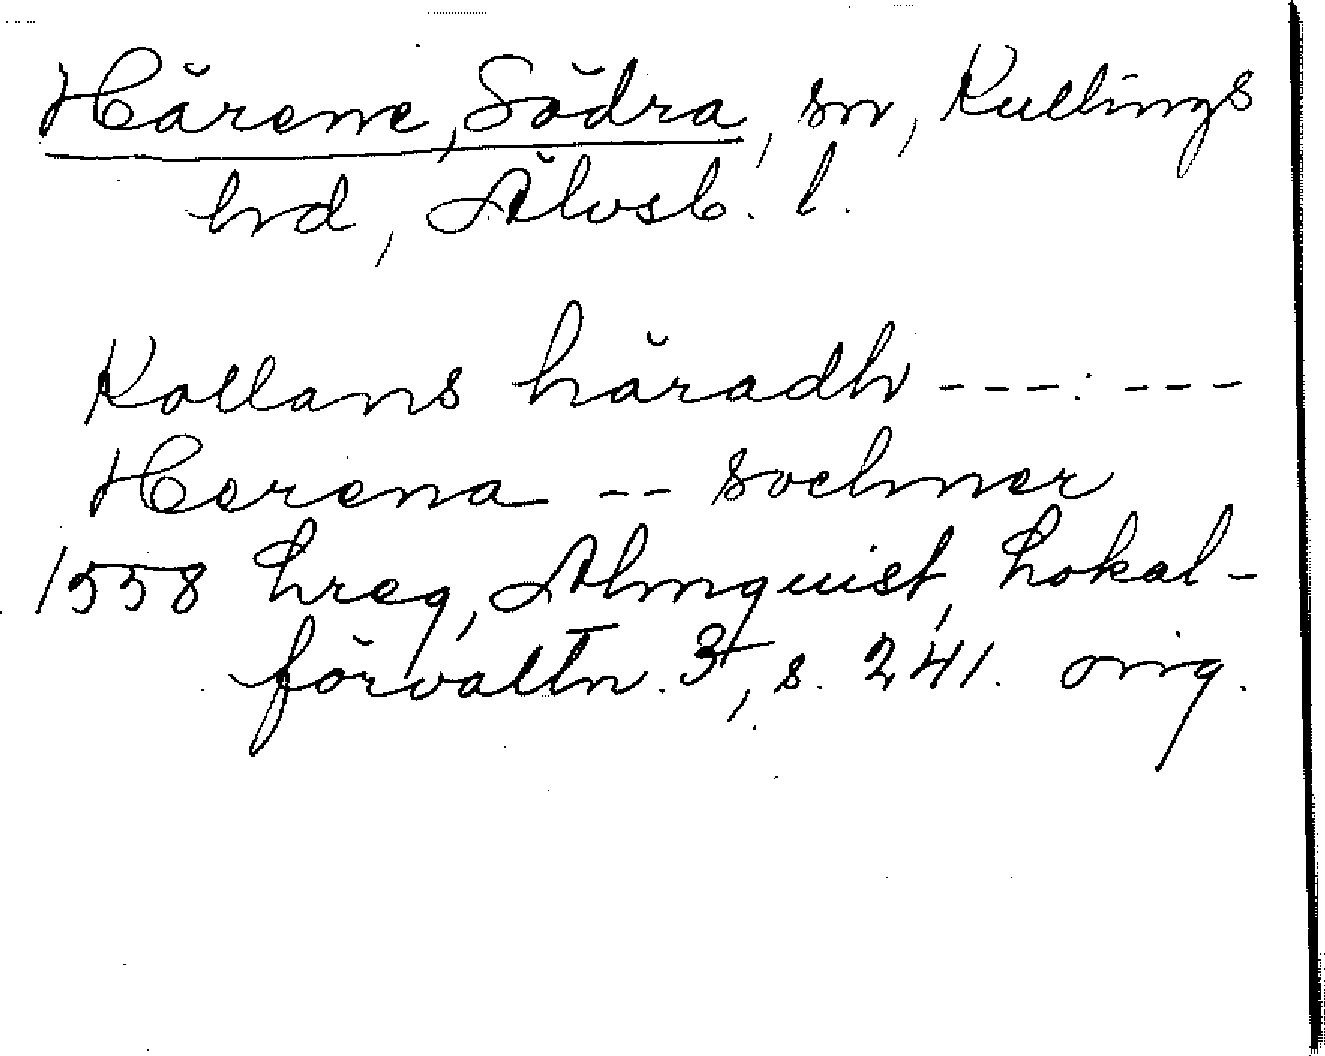 Härene, Södra, sn, Kullings
hrd, Älvsb. l.
Kollans häradh --- : ---
Herena -- sochner
1558 hreg, Almquist, Lokal-
förvaltn. 3, s. 241. orig.